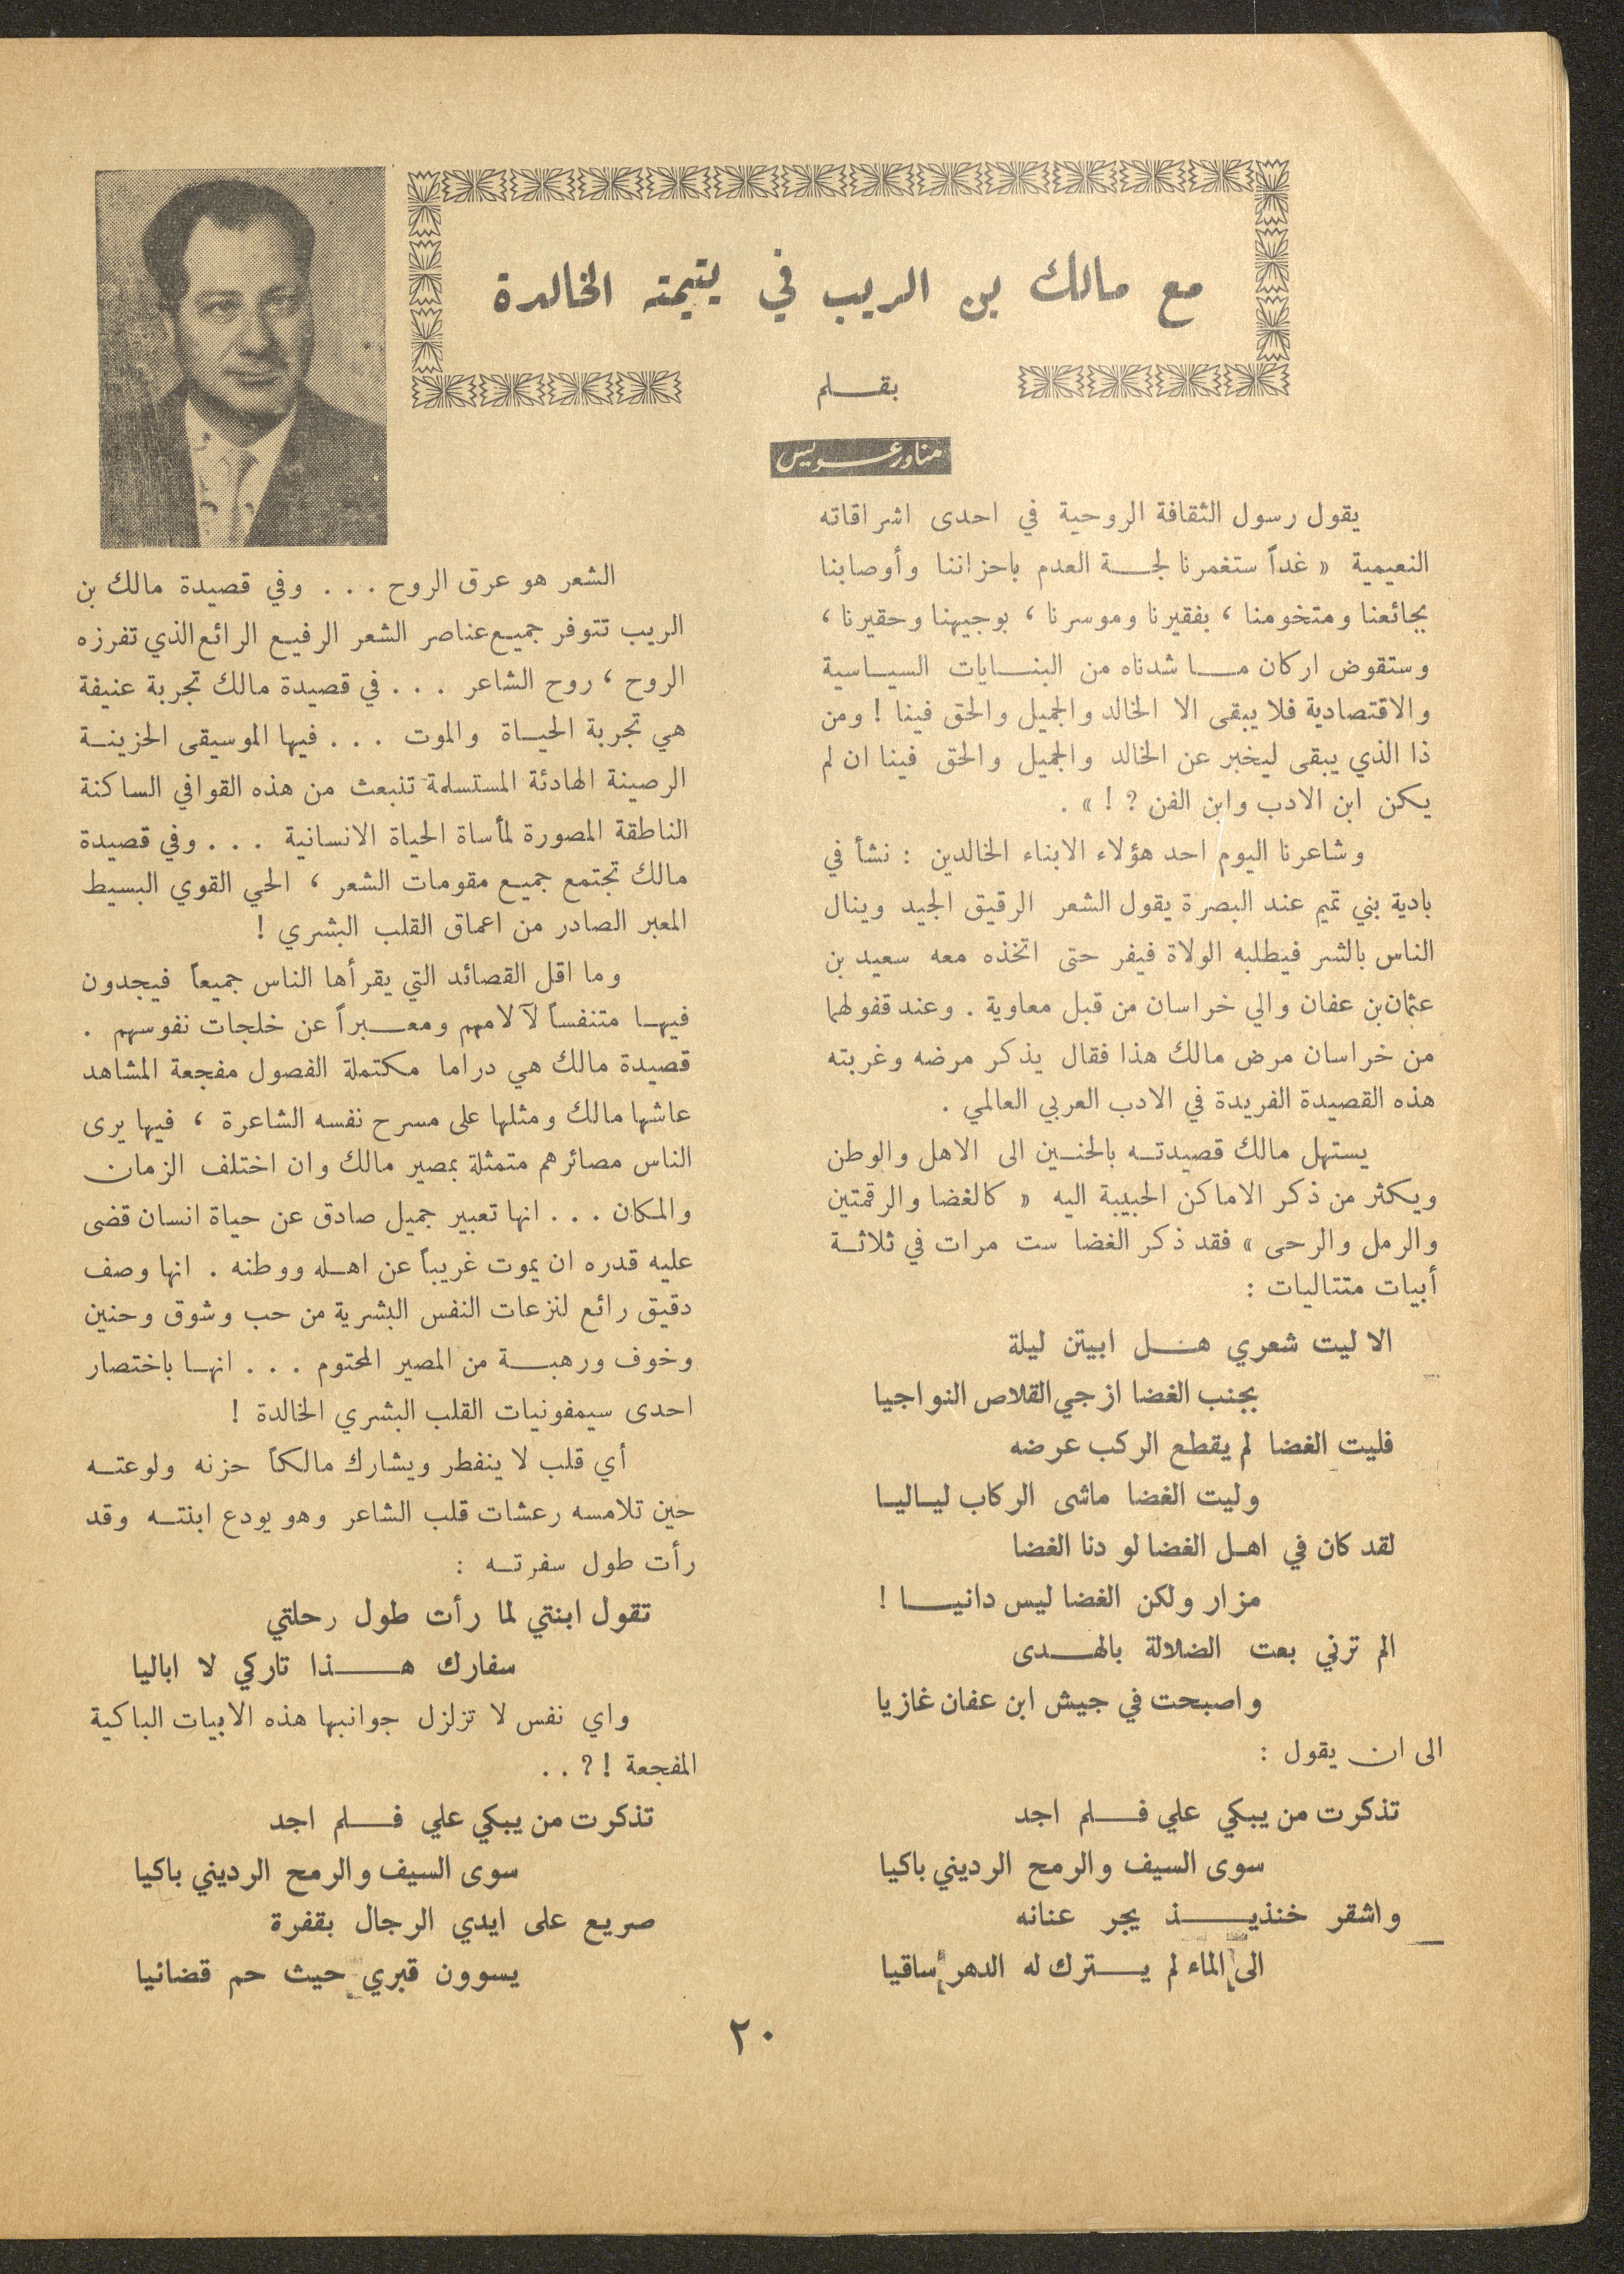 مع مالك بن الريب في يتيمته الخالدة
بقـــلم
مناور عـــويس
يقول رسول الثقافة الروحية في احدى اشراقاته
النعيمية « غداً ستغمرنا لجـــة العدم باحزاننا وأوصابنا
بجائعنا ومتخومنا ، بفقيرنا وموسرنا ، بوجيهنا وحقيرنا ،
وستقوض اركان مـــا شدناه من البنـــايات السيـــاسية
والاقتصادية فلا يبقى الا الخالد والجميل والحق فينا ! ومن
ذا الذي يبقى ليخبر عن الخالد والجميل والحق فينا ان لم
يكن ابن الادب وابن الفن ? ! » .
وشاعرنا اليوم احد هؤلاء الابناء الخالدين : نشأ في
بادية بني تميم عند البصرة يقول الشعر الرقيق الجيد وينال
الناس بالشر فيطلبه الولاة فيفر حتى اتخذه معه سعيد بن
عثمان بن عفان والي خراسان من قبل معاوية . وعند قفولهما
من خراسان مرض مالك هذا فقال يذكر مرضه وغربته
هذه القصيدة الفريدة في الادب العربي العالمي .
يستهل مالك قصيدتـــه بالحنـــين الى الاهل والوطن
ويكثر من ذكر الاماكن الحبيبة اليه « كالغضا والرقمتين
والرمل والرحى » فقد ذكر الغضا ست مرات في ثلاثـــة
أبيات متتاليات :
الا ليت شعري هـــل ابيتن ليلة
بجنب الغضا ازجي القلاص النواجيا
فليت الغضا لم يقطع الركب عرضه
وليت الغضا ماشى الركاب ليـــاليـــا
لقد كان في اهـــل الغضا لو دنا الغضا
مزار ولكن الغضا ليس دانيـــا !
الم ترني بعت الضلالة بالهـــدى
واصبحت في جيش ابن عفان غازيا
الى ان يقول :
تذكرت من يبكي علي فـــلم اجد
سوى السيف والرمح الرديني باكيا
واشقر خنذيـــذ يجر عنانه
الى الماء لم يـــترك له الدهر ساقيا
الشعر هو عرق الروح . . . وفي قصيدة مالك بن
الريب تتوفر جميع عناصر الشعر الرفيع الرائع الذي تفرزه
الروح ، روح الشاعر . . . في قصيدة مالك تجربة عنيفة
هي تجربة الحيـــاة والموت . . . فيها الموسيقى الحزينـــة
الرصينة الهادئة المستسلمة تنبعث من هذه القوافي الساكنة
الناطقة المصورة لمأساة الحياة الانسانية . . . وفي قصيدة
مالك تجتمع جميع مقومات الشعر ، الحي القوي البسيط
المعبر الصادر من اعماق القلب البشري !
وما اقل القصائد التي يقرأها الناس جميعاً فيجدون
فيهـــا متنفساً لآلامهم ومعـــبراً عن خلجات نفوسهم .
قصيدة مالك هي دراما مكتملة الفصول مفجعة المشاهد
عاشها مالك ومثلها على مسرح نفسه الشاعرة ، فيها يرى
الناس مصائرهم متمثلة بمصير مالك وان اختلف الزمان
والمكان . . . انها تعبير جميل صادق عن حياة انسان قضى
عليه قدره ان يموت غريباً عن اهـــله ووطنه . انها وصف
دقيق رائع لنزعات النفس البشرية من حب وشوق وحنين
وخوف ورهبـــة من المصير المحتوم . . . انهـــا باختصار
احدى سيمفونيات القلب البشري الخالدة !
أي قلب لا ينفطر ويشارك مالكاً حزنه ولوعتـــه
حين تلامسه رعشات قلب الشاعر وهو يودع ابنتـــه وقد
رأت طول سفرتـــه :
تقول ابنتي لما رأت طول رحلتي
سفارك هـــذا تاركي لا اباليا
واي نفس لا تزلزل جوانبها هذه الابيات الباكية
المفجعة !? . .
تذكرت من يبكي علي فـــلم اجد
سوى السيف والرمح الرديني باكيا
صريع على ايدي الرجال بقفرة
يسوون قبري حيث حم قضائيا
٢٠